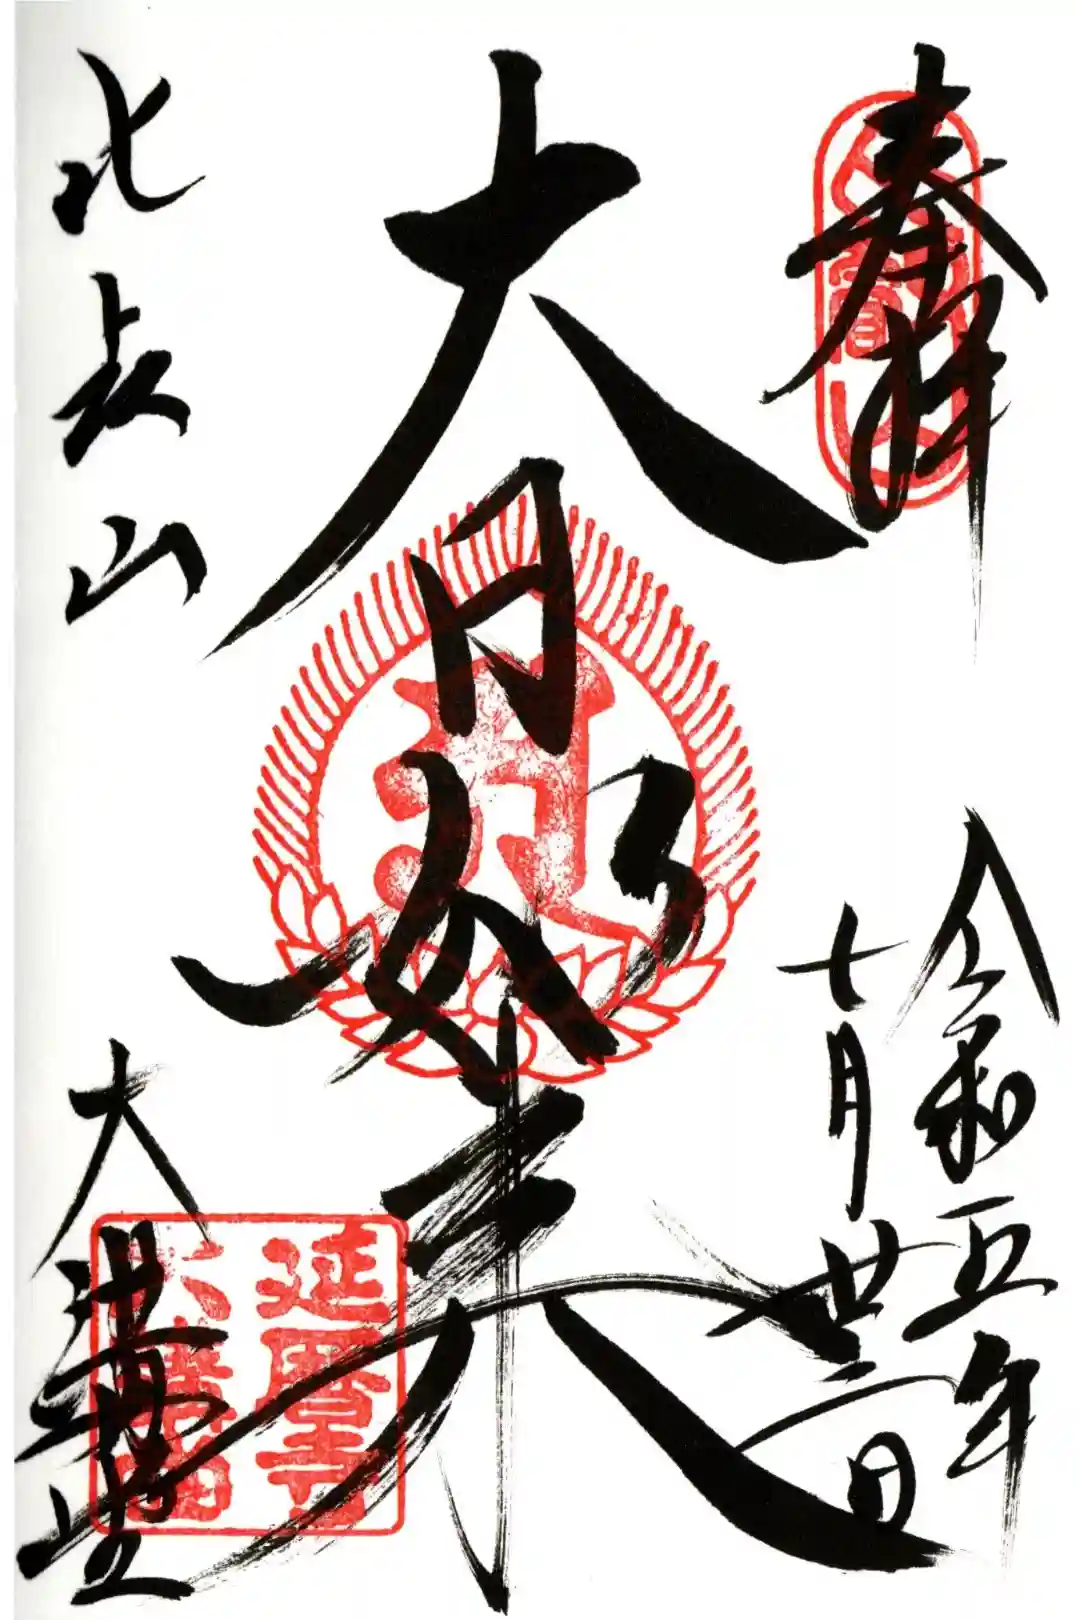 奉拝
令和五年
七月廿二日
大日如来
比叡山
大講堂
延暦寺